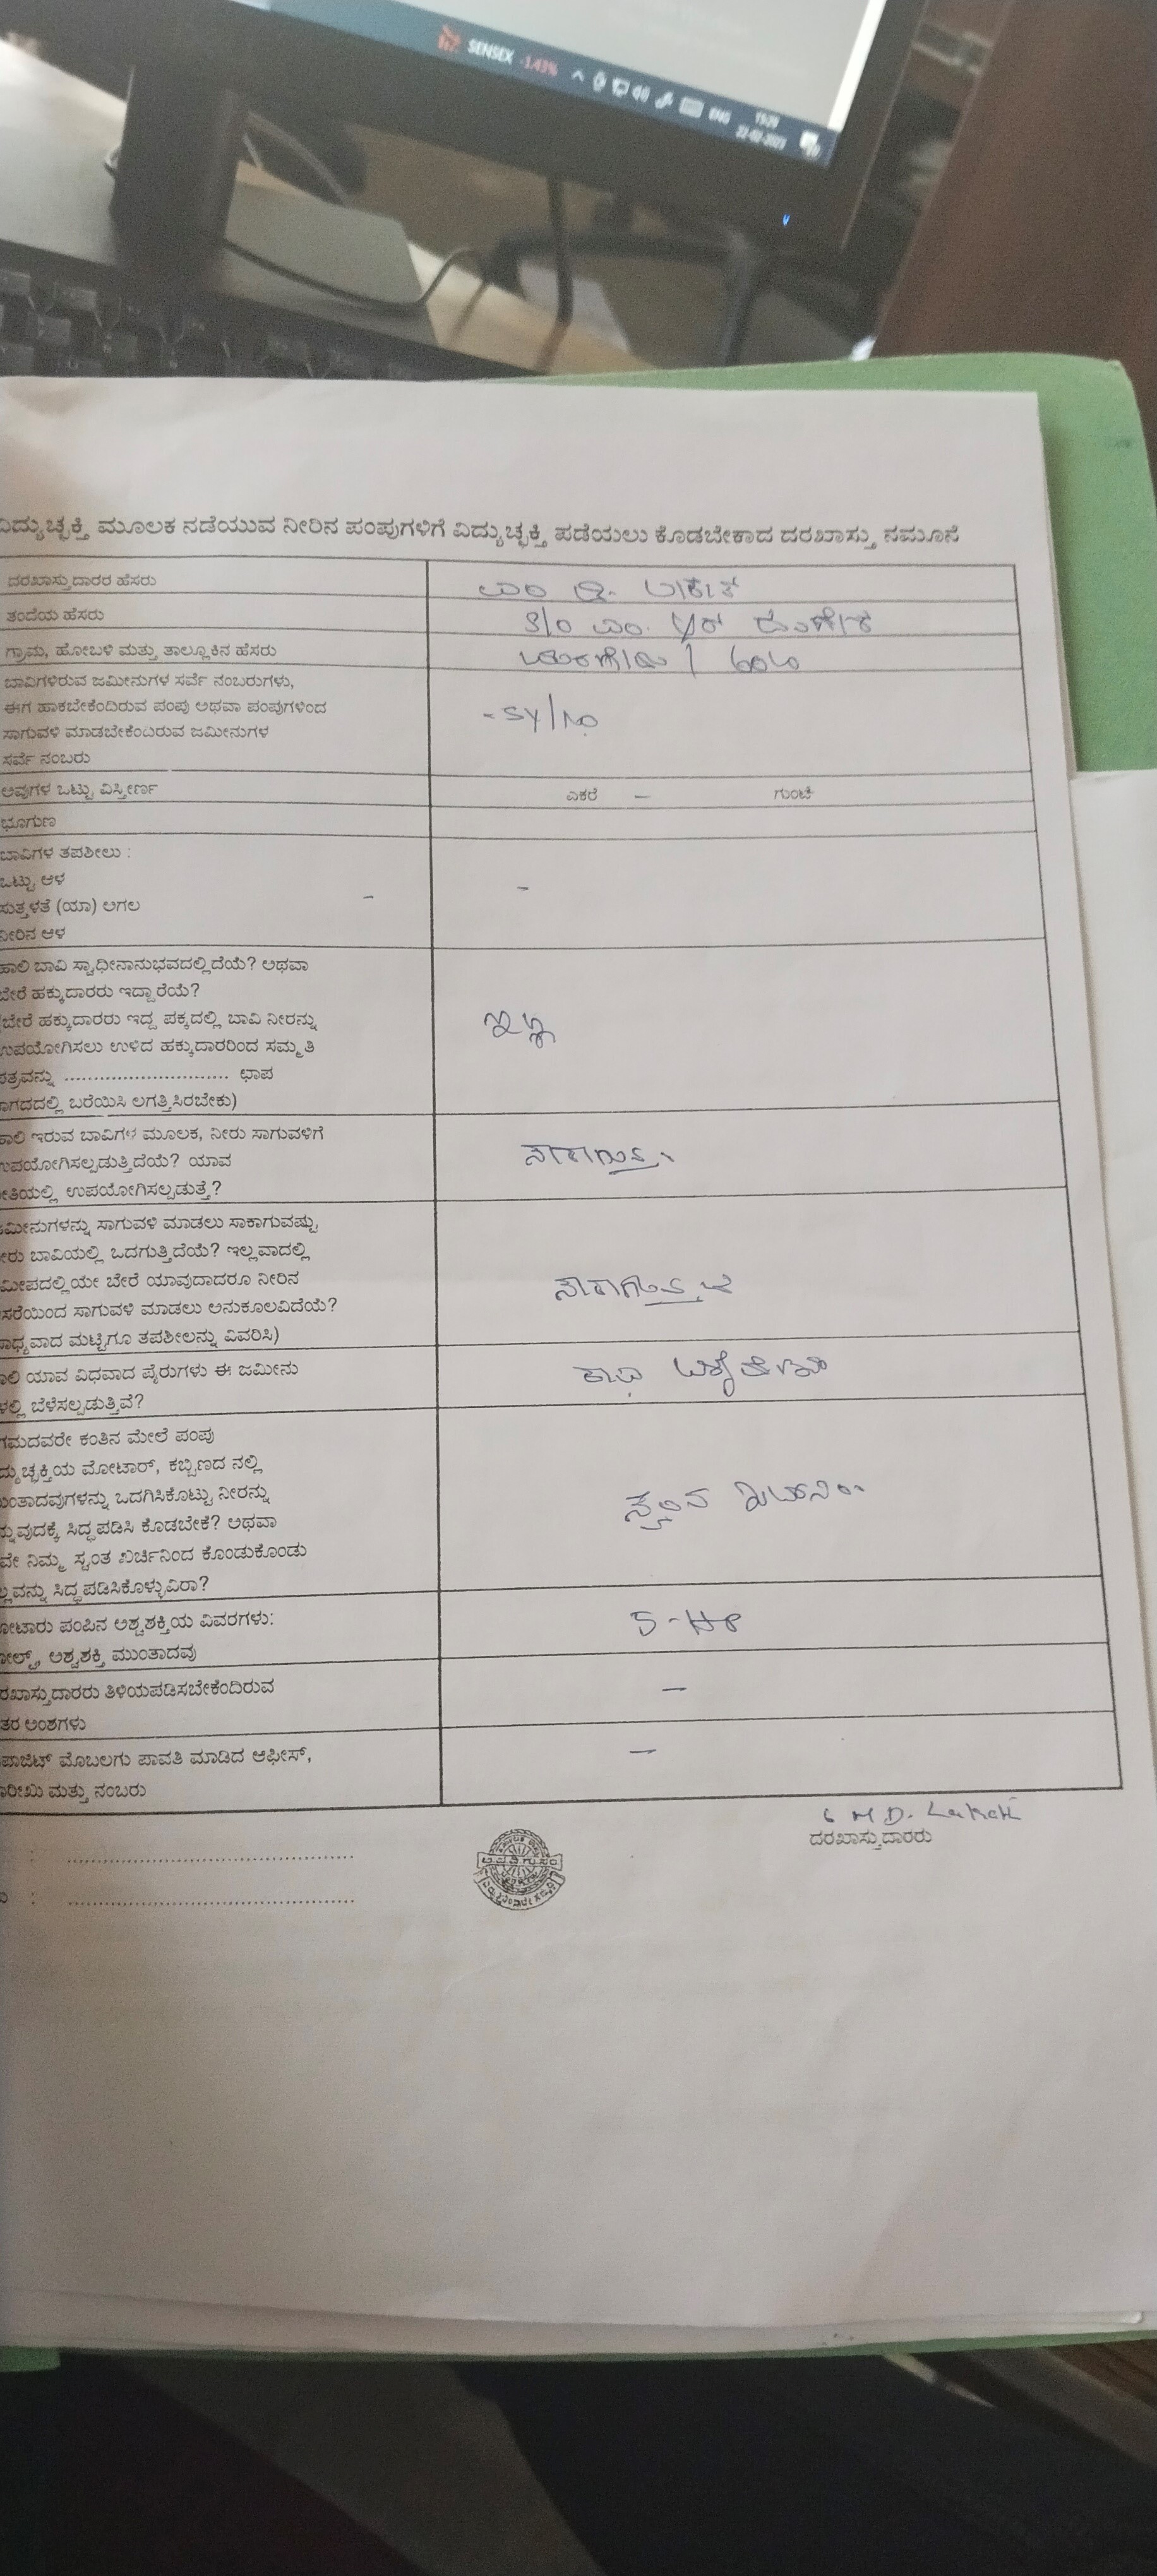 SENSEX -1.43%
ENG
15:29
22-02-2023
ವಿದ್ಯುಚ್ಛಕ್ತಿ ಮೂಲಕ ನಡೆಯುವ ನೀರಿನ ಪಂಪುಗಳಿಗೆ ವಿದ್ಯುಚ್ಛಕ್ತಿ ಪಡೆಯಲು ಕೊಡಬೇಕಾದ ದರಖಾಸ್ತು ನಮೂನೆ
ದರಖಾಸ್ತುದಾರರ ಹೆಸರು
ಎಂ ಡಿ. ಲಾಕೇಶ
ತಂದೆಯ ಹೆಸರು
S/o ಎಂ.
ಗ್ರಾಮ, ಹೋಬಳಿ ಮತ್ತು ತಾಲ್ಲೂಕಿನ ಹೆಸರು
ಬಾವಿಗಳಿರುವ ಜಮೀನುಗಳ ಸರ್ವೆ ನಂಬರುಗಳು,
ಈಗ ಹಾಕಬೇಕೆಂದಿರುವ ಪಂಪು ಅಥವಾ ಪಂಪುಗಳಿಂದ
ಸಾಗುವಳಿ ಮಾಡಬೇಕೆಂದಿರುವ ಜಮೀನುಗಳ
ಸರ್ವೆ ನಂಬರು
- SY/No
ಅವುಗಳ ಒಟ್ಟು ವಿಸ್ತೀರ್ಣ
ಎಕರೆ — ಗುಂಟೆ
ಭೂಗುಣ
ಬಾವಿಗಳ ತಪಶೀಲು :
ಒಟ್ಟು ಆಳ
ಸುತ್ತಳತೆ (ಯಾ) ಅಗಲ -
ನೀರಿನ ಆಳ
-
ಹಾಲಿ ಬಾವಿ ಸ್ವಾಧೀನಾನುಭವದಲ್ಲಿದೆಯೆ? ಅಥವಾ
ಬೇರೆ ಹಕ್ಕುದಾರರು ಇದ್ದಾರೆಯೆ?
(ಬೇರೆ ಹಕ್ಕುದಾರರು ಇದ್ದ ಪಕ್ಕದಲ್ಲಿ ಬಾವಿ ನೀರನ್ನು
ಉಪಯೋಗಿಸಲು ಉಳಿದ ಹಕ್ಕುದಾರರಿಂದ ಸಮ್ಮತಿ
ಪತ್ರವನ್ನು ............................ ಛಾಪ
ಾಗದದಲ್ಲಿ ಬರೆಯಿಸಿ ಲಗತ್ತಿಸಿರಬೇಕು)
ಇಲ್ಲ
ಾಲಿ ಇರುವ ಬಾವಿಗಳ ಮೂಲಕ, ನೀರು ಸಾಗುವಳಿಗೆ
ಉಪಯೋಗಿಸಲ್ಪಡುತ್ತಿದೆಯೆ? ಯಾವ
ೀತಿಯಲ್ಲಿ ಉಪಯೋಗಿಸಲ್ಪಡುತ್ತೆ?
ಸಾಕಾಗುತ್ತೆ
ಮೀನುಗಳನ್ನು ಸಾಗುವಳಿ ಮಾಡಲು ಸಾಕಾಗುವಷ್ಟು
ೀರು ಬಾವಿಯಲ್ಲಿ ಒದಗುತ್ತಿದೆಯೆ? ಇಲ್ಲವಾದಲ್ಲಿ
ಮೀಪದಲ್ಲಿಯೇ ಬೇರೆ ಯಾವುದಾದರೂ ನೀರಿನ
ಸರೆಯಿಂದ ಸಾಗುವಳಿ ಮಾಡಲು ಅನುಕೂಲವಿದೆಯೆ?
ಾಧ್ಯವಾದ ಮಟ್ಟಿಗೂ ತಪಶೀಲನ್ನು ವಿವರಿಸಿ)
ಸಾಕಾಗುತ್ತದೆ
ಾಲಿ ಯಾವ ವಿಧವಾದ ಪೈರುಗಳು ಈ ಜಮೀನು
ಳಲ್ಲಿ ಬೆಳೆಸಲ್ಪಡುತ್ತಿವೆ?
ಕಾಫಿ
ಗಮದವರೇ ಕಂತಿನ ಮೇಲೆ ಪಂಪು
ದ್ಯುಚ್ಛಕ್ತಿಯ ಮೋಟಾರ್, ಕಬ್ಬಿಣದ ನಲ್ಲಿ
ುಂತಾದವುಗಳನ್ನು ಒದಗಿಸಿಕೊಟ್ಟು ನೀರನ್ನು
ನ್ನುವುದಕ್ಕೆ ಸಿದ್ಧಪಡಿಸಿ ಕೊಡಬೇಕೆ? ಅಥವಾ
ವೇ ನಿಮ್ಮ ಸ್ವಂತ ಖರ್ಚಿನಿಂದ ಕೊಂಡುಕೊಂಡು
ಲ್ಲವನ್ನು ಸಿದ್ಧಪಡಿಸಿಕೊಳ್ಳುವಿರಾ?
ೋಟಾರು ಪಂಪಿನ ಅಶ್ವಶಕ್ತಿಯ ವಿವರಗಳು:
ೋಲ್ಟ್, ಅಶ್ವಶಕ್ತಿ ಮುಂತಾದವು
5-HP
ರಖಾಸ್ತುದಾರರು ತಿಳಿಯಪಡಿಸಬೇಕೆಂದಿರುವ
ತರ ಅಂಶಗಳು
—
ಪಾಜಿಟ್ ಮೊಬಲಗು ಪಾವತಿ ಮಾಡಿದ ಆಫೀಸ್,
ಾರೀಖು ಮತ್ತು ನಂಬರು
—
M D. Lakesh
ದರಖಾಸ್ತುದಾರರು
: ................................................
: ................................................